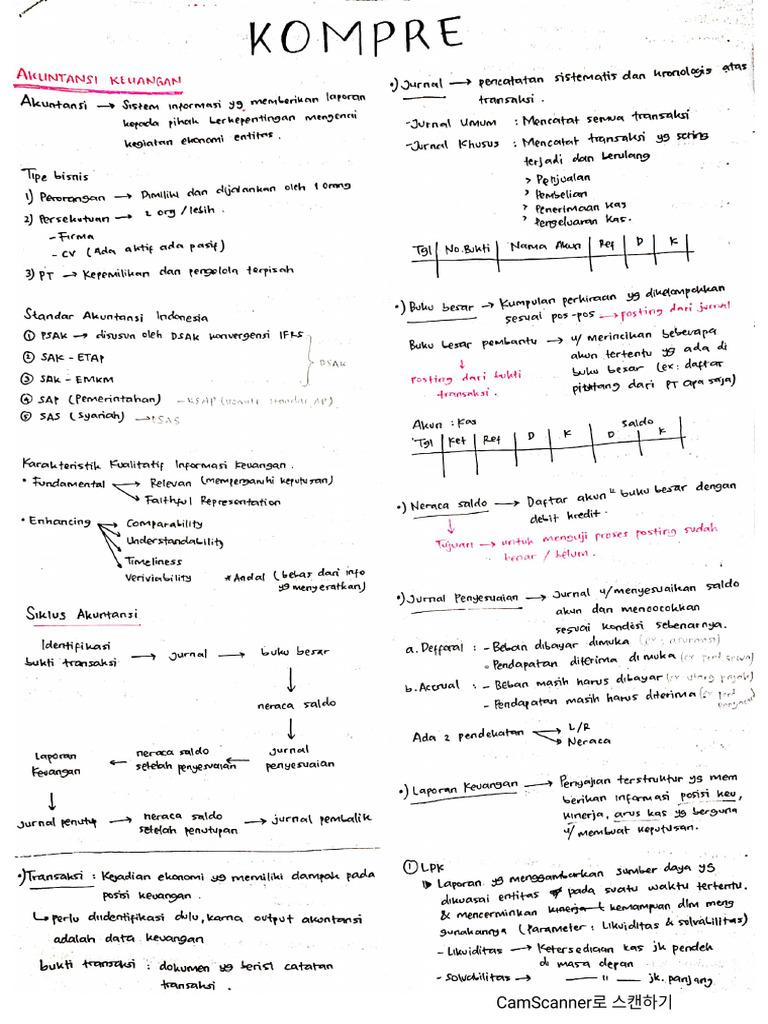 KOMPRE
AKUNTANSI KEUANGAN
Akuntansi → Sistem informasi yg memberikan laporan
kepada pihak berkepentingan mengenai
kegiatan ekonomi entitas.
Tipe bisnis
1) Perorangan → Dimiliki dan dijalankan oleh 1 orang
2) Persekutuan → 2 org / lebih.
- Firma
- CV (Ada aktif ada pasif)
3) PT → Kepemilikan dan pengelola terpisah
Standar Akuntansi Indonesia
① PSAK → disusun oleh DSAK konvergensi IFRS
② SAK - ETAP
③ SAK - EMKM
DSAK
④ SAP (Pemerintahan) - KSAP
⑤ SAS (Syariah) →
Karakteristik Kualitatif Informasi Keuangan.
• Fundamental → Relevan (mempengaruhi keputusan)
→ Faithful Representation
• Enhancing → Comparability
→ Understandability
→ Timeliness
Veriviability *Andal (bebas dari info
yg menyeratkan)
Siklus Akuntansi
Identifikasi
bukti transaksi → jurnal → buku besar
↓
neraca saldo
↓
Laporan
Keuangan ← neraca saldo
setelah penyesuaian ← jurnal
penyesuaian
↓
jurnal penutup → neraca saldo
setelah penutupan → jurnal pembalik
•) Transaksi : Kejadian ekonomi yg memiliki dampak pada
posisi keuangan.
↳ perlu diidentifikasi dulu, karna output akuntansi
adalah data keuangan
bukti transaksi : dokumen yg berisi catatan
transaksi.
•) Jurnal → pencatatan sistematis dan kronologis atas
transaksi.
- Jurnal Umum : Mencatat semua transaksi
- Jurnal Khusus : Mencatat transaksi yg sering
terjadi dan berulang
> Penjualan
> Pembelian
> Penerimaan kas
> Pengeluaran kas.
Tgl | No. Bukti | Nama Akun | Ref | D | K
•) Buku besar → Kumpulan perkiraan yg dikelompokkan
sesuai pos-pos → posting dari jurnal
Buku besar pembantu → u/ merincikan beberapa
akun tertentu yg ada di
buku besar (ex: daftar
piutang dari PT apa saja)
↓
posting dari bukti
transaksi.
Akun : Kas
Saldo
Tgl | Ket | Ref | D | K | D | K
•) Neraca saldo → Daftar akun² buku besar dengan
debit kredit.
↓
Tujuan → untuk menguji proses posting sudah
benar / belum.
•) Jurnal Penyesuaian → Jurnal u/menyesuaikan saldo
akun dan mencocokkan
sesuai kondisi sebenarnya.
a. Defferal : - Beban dibayar dimuka (ex: asuransi)
- Pendapatan diterima di muka (ex: pend sewa)
b. Accrual : - Beban masih harus dibayar (ex utang pajak)
- Pendapatan masih harus diterima (ex pend
Ada 2 pendekatan → L/R
→ Neraca
•) Laporan Keuangan → Penyajian terstruktur yg mem
berikan informasi posisi keu,
kinerja, arus kas yg berguna
u/ membuat keputusan.
① LPK
Laporan yg menggambarkan sumber daya yg
dikuasai entitas pada suatu waktu tertentu.
& mencerminkan kinerja kemampuan dlm meng
gunakannya (Parameter : Likuiditas & solvabilitas)
- Likuiditas → Ketersediaan kas jk pendek
di masa depan
- Solvabilitas → —— " —— jk. panjang
CamScanner로 스캔하기